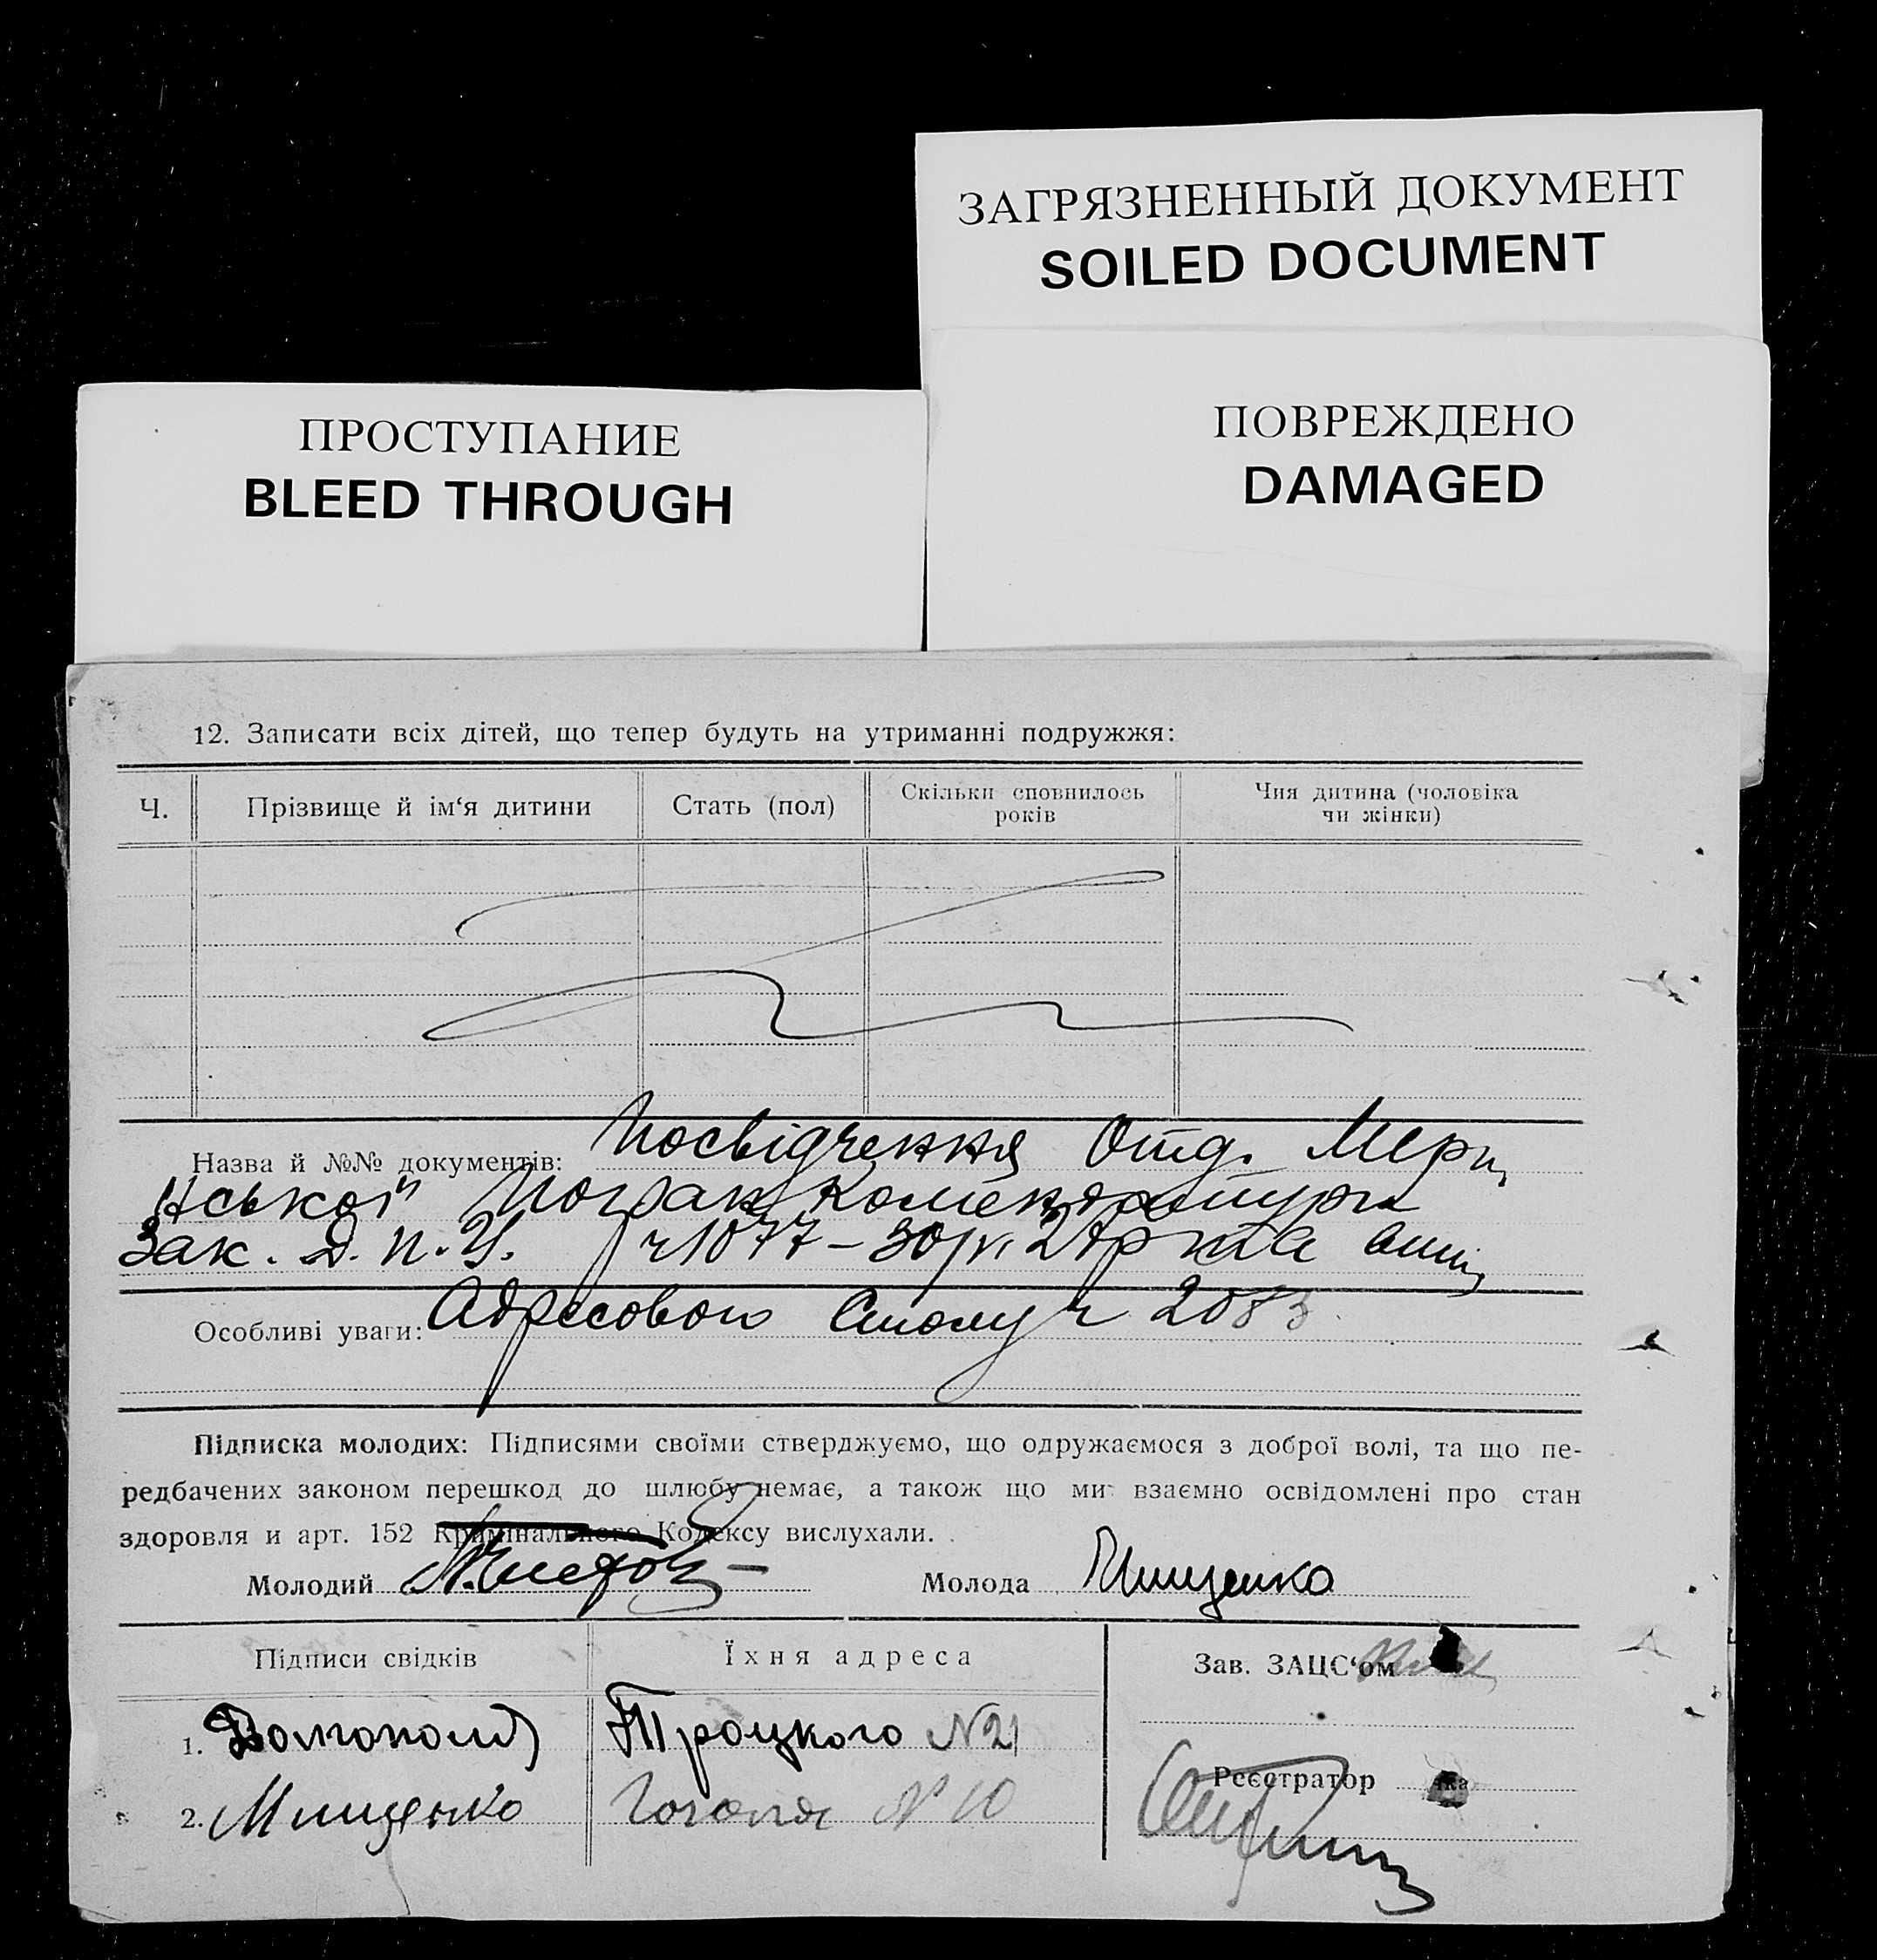 ЗАГРЯЗНЕННЫЙ ДОКУМЕНТ
SOILED DOCUMENT
ПОВРЕЖДЕНО
DAMAGED
ПРОСТУПАНИЕ
BLEED THROUGH
12. Записати всіх дітей, що тепер будуть на утриманні подружжя:
Ч.
Прізвище й ім‘я дитини
Стать (пол)
Скільки сповнилось
років
Чия дитина (чоловіка
чи жінки)
Назва й №№ документів: Посвідчення Отд.
нської
Зак. Д. П. У. ч 1077 – 30/
Особливі уваги: Адресового Столу ч 2083
Підписка молодих: Підписями своїми стверджуємо, що одружаємося з доброї волі, та що пе-
редбачених законом перешкод до шлюбу немає, а також що ми взаємно освідомлені про стан
здоровля и арт. 152 Кримінального Кодексу вислухали.
Молодий
Молода
Підписи свідків
Їхня адреса
Зав. ЗАЦС‘ом
1.
Троцкого N 21
2. Мищенко
Гоголя № 10
Реєстратор